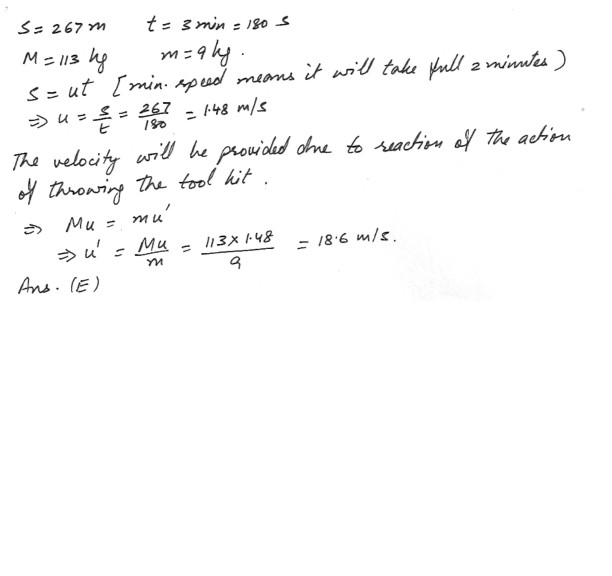 S = 267 m t = 3 min = 180 s
M = 113 kg m = 9 kg.
S = ut [min. speed means it will take full 2 minutes)
⇒ u = s/t = 267/180 = 1.48 m/s
The velocity will be provided due to reaction of the action
of throwing the tool kit.
⇒ Mu = mu'
⇒ u' = Mu/m = 113 x 1.48/9 = 18.6 m/s.
Ans. (E)